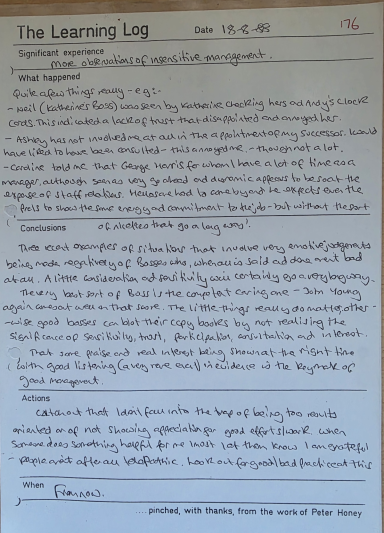 The Learning Log Date 18-8-88 176
Significant experience
more observations of insensitive management.
What happened
Quite a few things really - e.g:-
- Neil (Katherine's Boss) was seen by Katherine checking hers and Andy's clock
cards. This indicated a lack of trust that disappointed and annoyed her.
- Ashley has not involved me at all in the appointment of my successor. Would
have liked to have been consulted - this annoyed me - though not a lot.
- Caroline told me that George Harris for whom I have a lot of time as a
manager, although seen as very go ahead and dynamic appears to be so at the
expense of staff relations. He has and to come beyond he expects even the
to show the same energy and commitment to the job - but without the sort
Conclusions of niceties that go a long way!
Three recent examples of situations that involve very emotive judgements
being made negatively of Bosses who, when all is said and done, arent bad
at all. A little consideration and sensitivity will certainly go a very long way.
The very best sort of Boss is the competent caring one - John Young
again comes out well on that score. The little things really do matter, other-
-wise good bosses can blot their copy books by not realising the
significance of sensitivity, trust, participation, consultation and interest.
That some praise and real interest being shown at the right time
with good listening (a very rare ) in evidence is the keynote of
good management.
Actions
Catch out that I dont fall into the trap of being too results
oriented or of not showing appreciation for good efforts/work. When
someone does something helpful for me I must let them know I am grateful
- people arent after all telepathic. Look out for good/bad practice at this
When From now.
....pinched, with thanks, from the work of Peter Honey